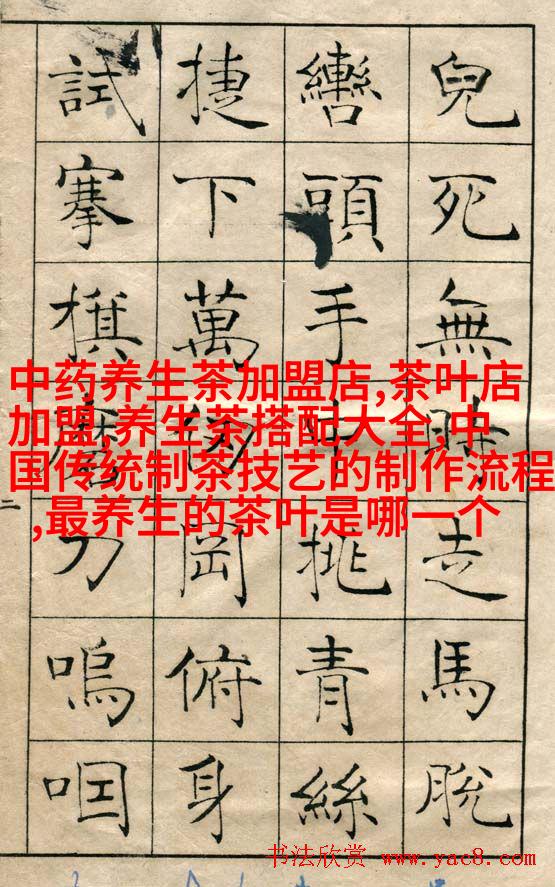 兒死無時走馬脫
轡頭手中挑青絲
捷下萬仞岡俯身
試搴旗磨刀嗚咽
二
中药养生茶加盟店,茶叶店
加盟,养生茶搭配大全,中
国传统制茶技艺的制作流程
,最养生的茶叶是哪一个
书法欣赏 www.yac8.com